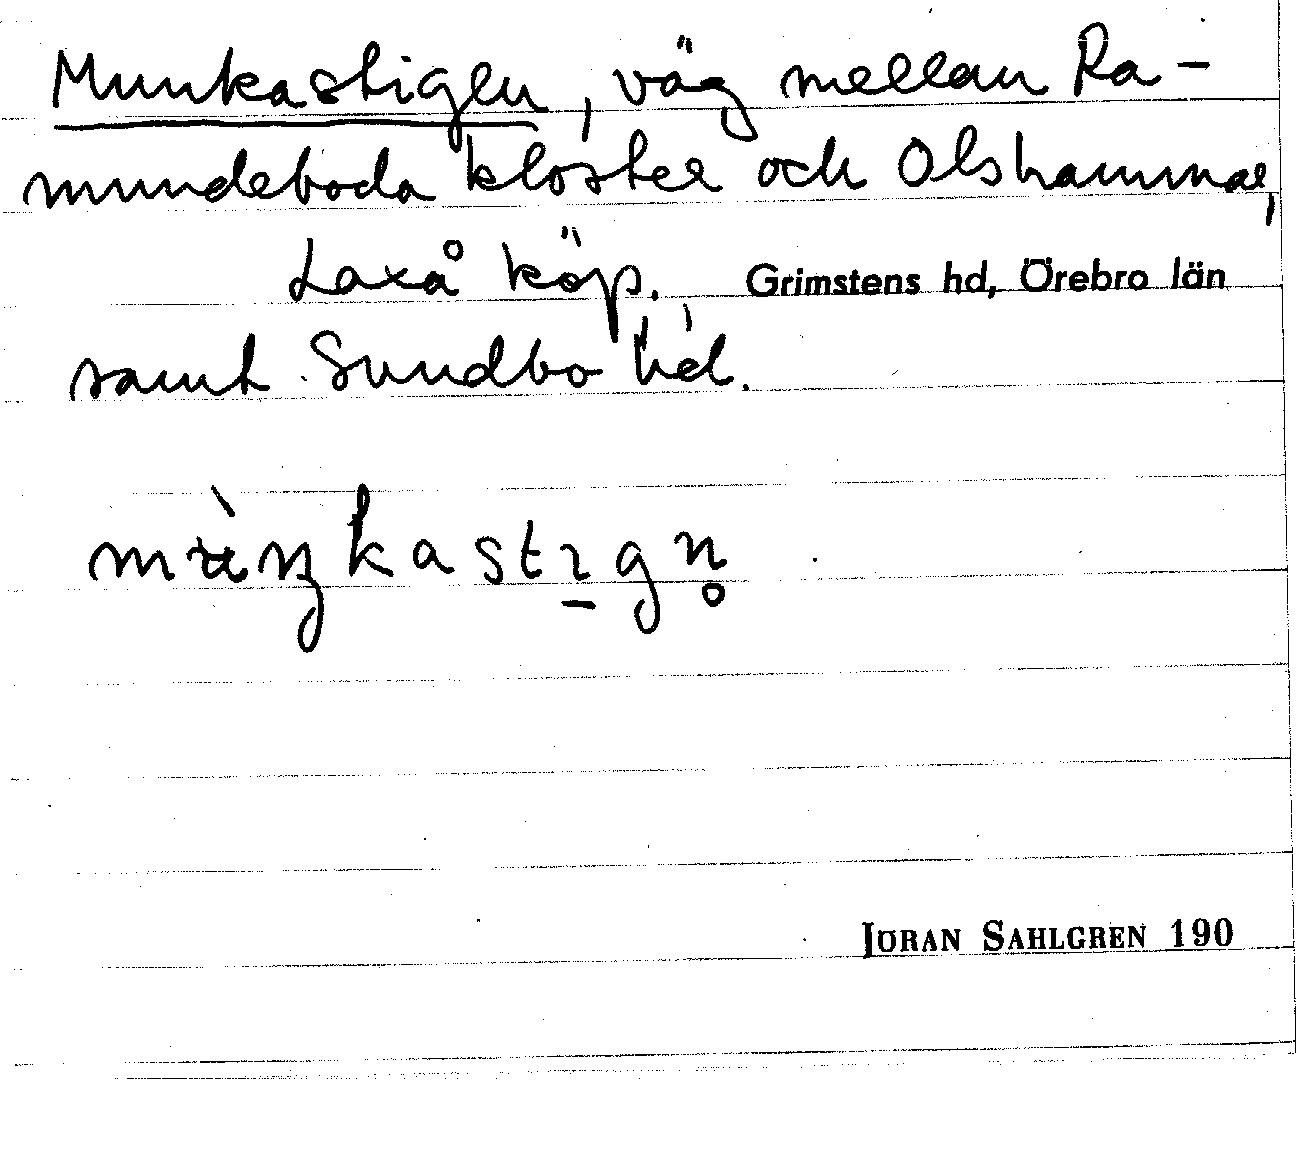 Munkastigen, väg mellan Ra-
mundeboda kloster och Olshammar,
Laxå köp. Grimstens hd, Örebro län
samt Sundbo hd.
JÖRAN SAHLGREN 190